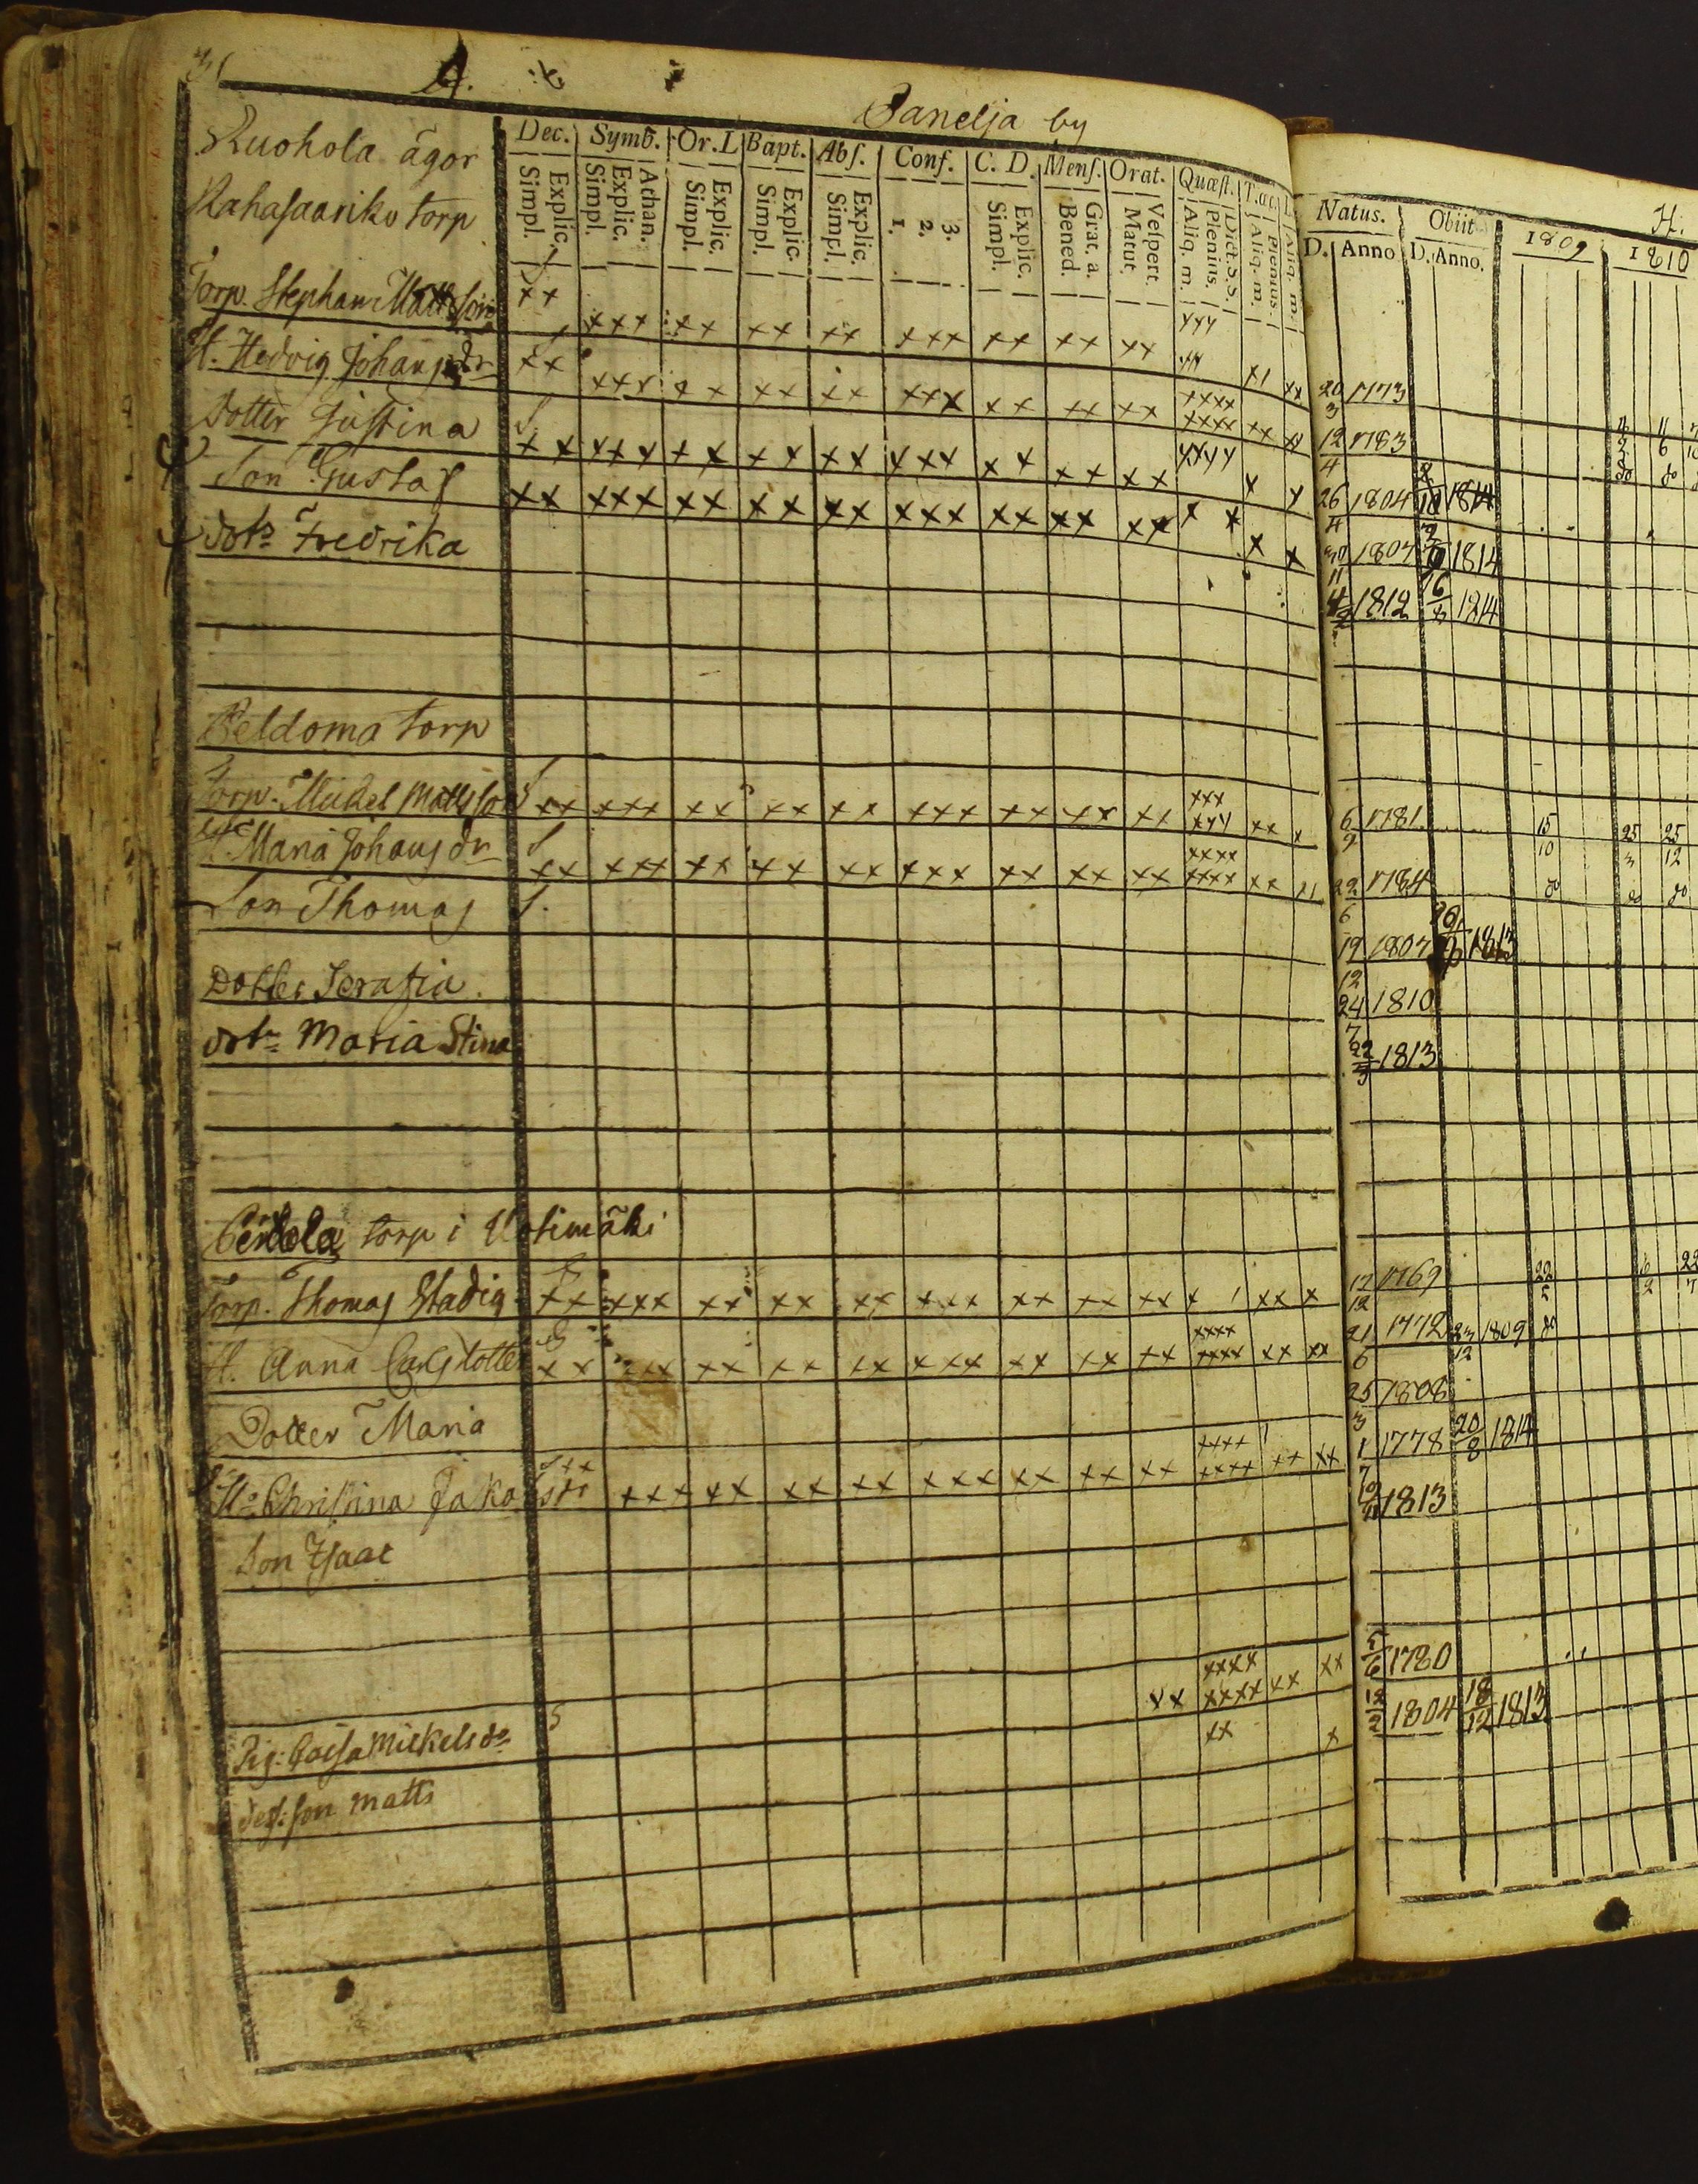 31 A.
Panelja by
Ruohola ägor
Rahasaariko torp
Dec. Symb. Or. L Bapt. Abſ. Conf. C. D. Menſ. Orat. Quæſt. T. æc.
Explic. Simpl. Athan. Explic. Simpl. Explic. Simpl. Explic. Simpl. Explic. Simpl. 3. 2. 1. Explic. Simpl. Grat. a. Bened. Veſpert. Matut. Dict. S. S. Plenius. Aliq. m. Plenius. Aliq. m. Aliq. m.
Natus. Obiit 1809 H. 1810
D. Anno D. Anno.
Torp. Stephan Mattsson 20/3 1773
H. Hedvig Johansdr 12/4 1783
Dotter Justina 26/4 1804 1814
Son Gustaf 30/11 1807 1814
dotr Fredrika 1812 16/8 1814
Peldoma torp
Torp. Michel Mattsson 6/9 1781 15/10 25/3 25/12
H. Maria Johansdr 22/6 1784 do do do
Son Thomas 19/12 1807 1813
Dotter Serafia 24/7 1810
dotr Maria Stina 22/3 1813
torp i Uotimäki
Torp. Thomas Stadig 12/12 1769 22/5 6/2
H. Anna Carlsdotter 21/6 1772 23/12 1809 do
Dotter Maria 25/3 1808
H. Christina Jakobsdr 1/7 1778 20/8 1814
Son Isaac 1813
Pig: Caisa Mickelsdr 5/6 1780
des: son matts 12/2 1804 18/12 1813